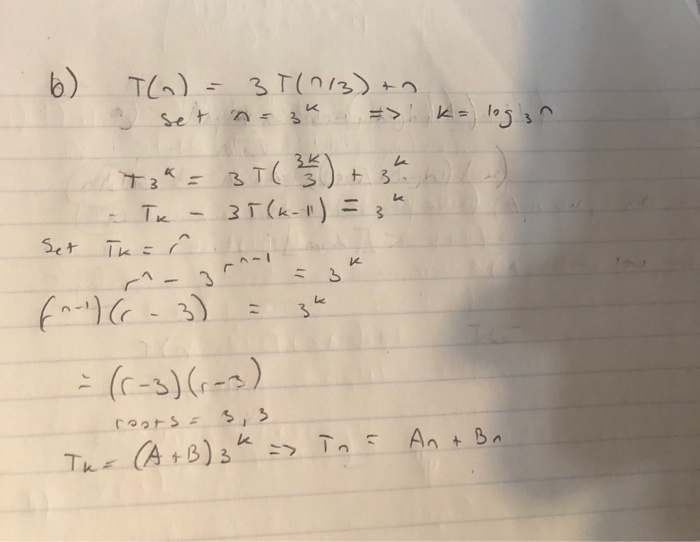 b) T(n) = 3T(n/3) + n
set n = 3^k => k = log_3 n
T3^k = 3T(3k/3) + 3^k
- T_k - 3T(k-1) = 3^k
Set T_k = r^n
r^n - 3r^{n-1} = 3^k
(r^{n-1})(r - 3) = 3^k
= (r-3)(r-3)
roots = 3, 3
T_k = (A+B)3^k => T_n = An + Bn